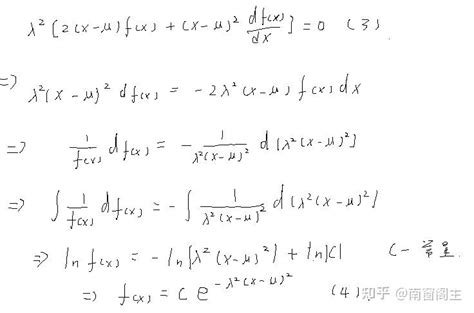 λ² [2(x-μ)f(x) + (x-μ)² df(x)/dx] = 0 (3)
=> λ²(x-μ)² df(x) = -2λ²(x-μ) f(x) dx
=> 1/f(x) df(x) = - 1/λ²(x-μ)² d[λ²(x-μ)²]
=> ∫ 1/f(x) df(x) = -∫ 1/λ²(x-μ)² d[λ²(x-μ)²]
=> ln f(x) = -ln[λ²(x-μ)²] + ln|C| C-常量
=> f(x) = C e^{-λ²(x-μ)²} (4)
知乎 @南窗阁主